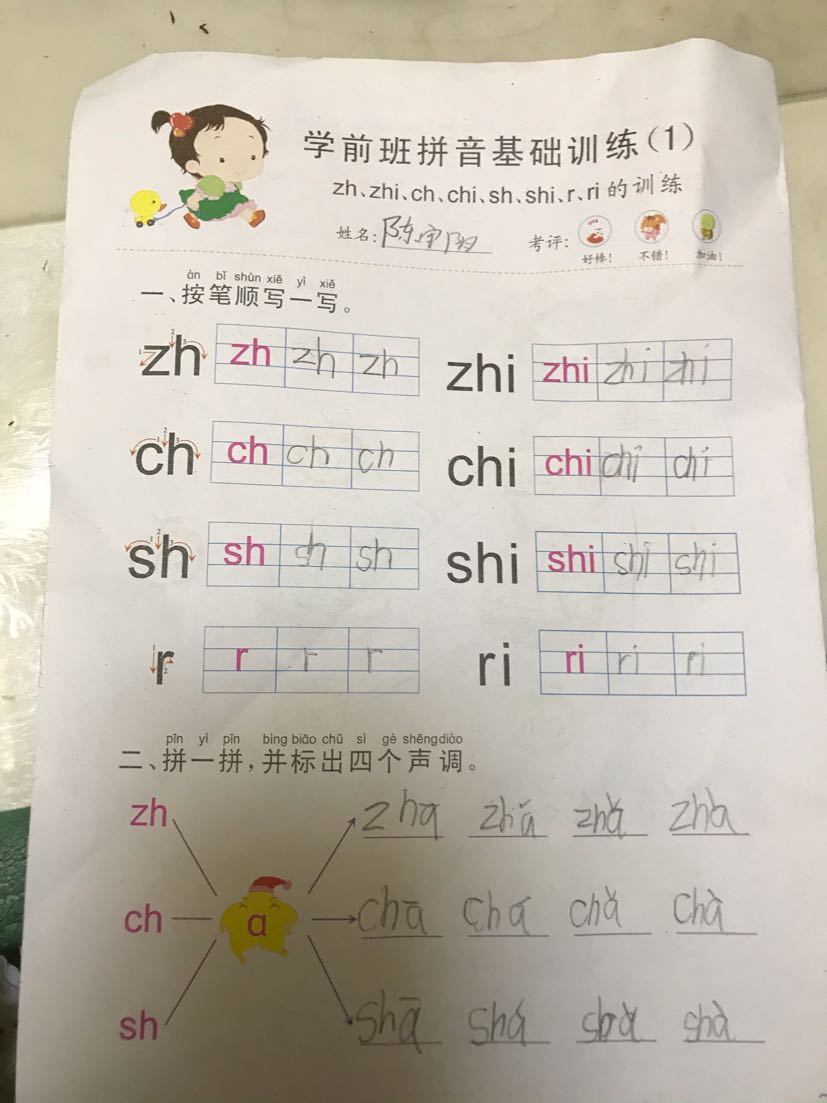 学前班拼音基础训练(1)
zh、zhi、ch、chi、sh、shi、r、ri的训练
姓名:陈宇阳 考评: 好棒! 不错! 加油!
àn bǐ shùn xiě yì xiě
一、按笔顺写一写。
zh zh zh zh zhi zhi zhi zhi
ch ch ch ch chi chi chi chi
sh sh sh sh shi shi shi shi
r r r r ri ri ri ri
pīn yì pīn bìng biāo chū sì gè shēng diào
二、拼一拼,并标出四个声调。
zh zhā zhá zhǎ zhà
ch ɑ chā chá chǎ chà
sh shā shá shǎ shà